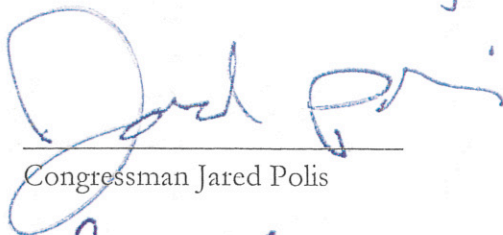 Jared Polis
Congressman Jared Polis